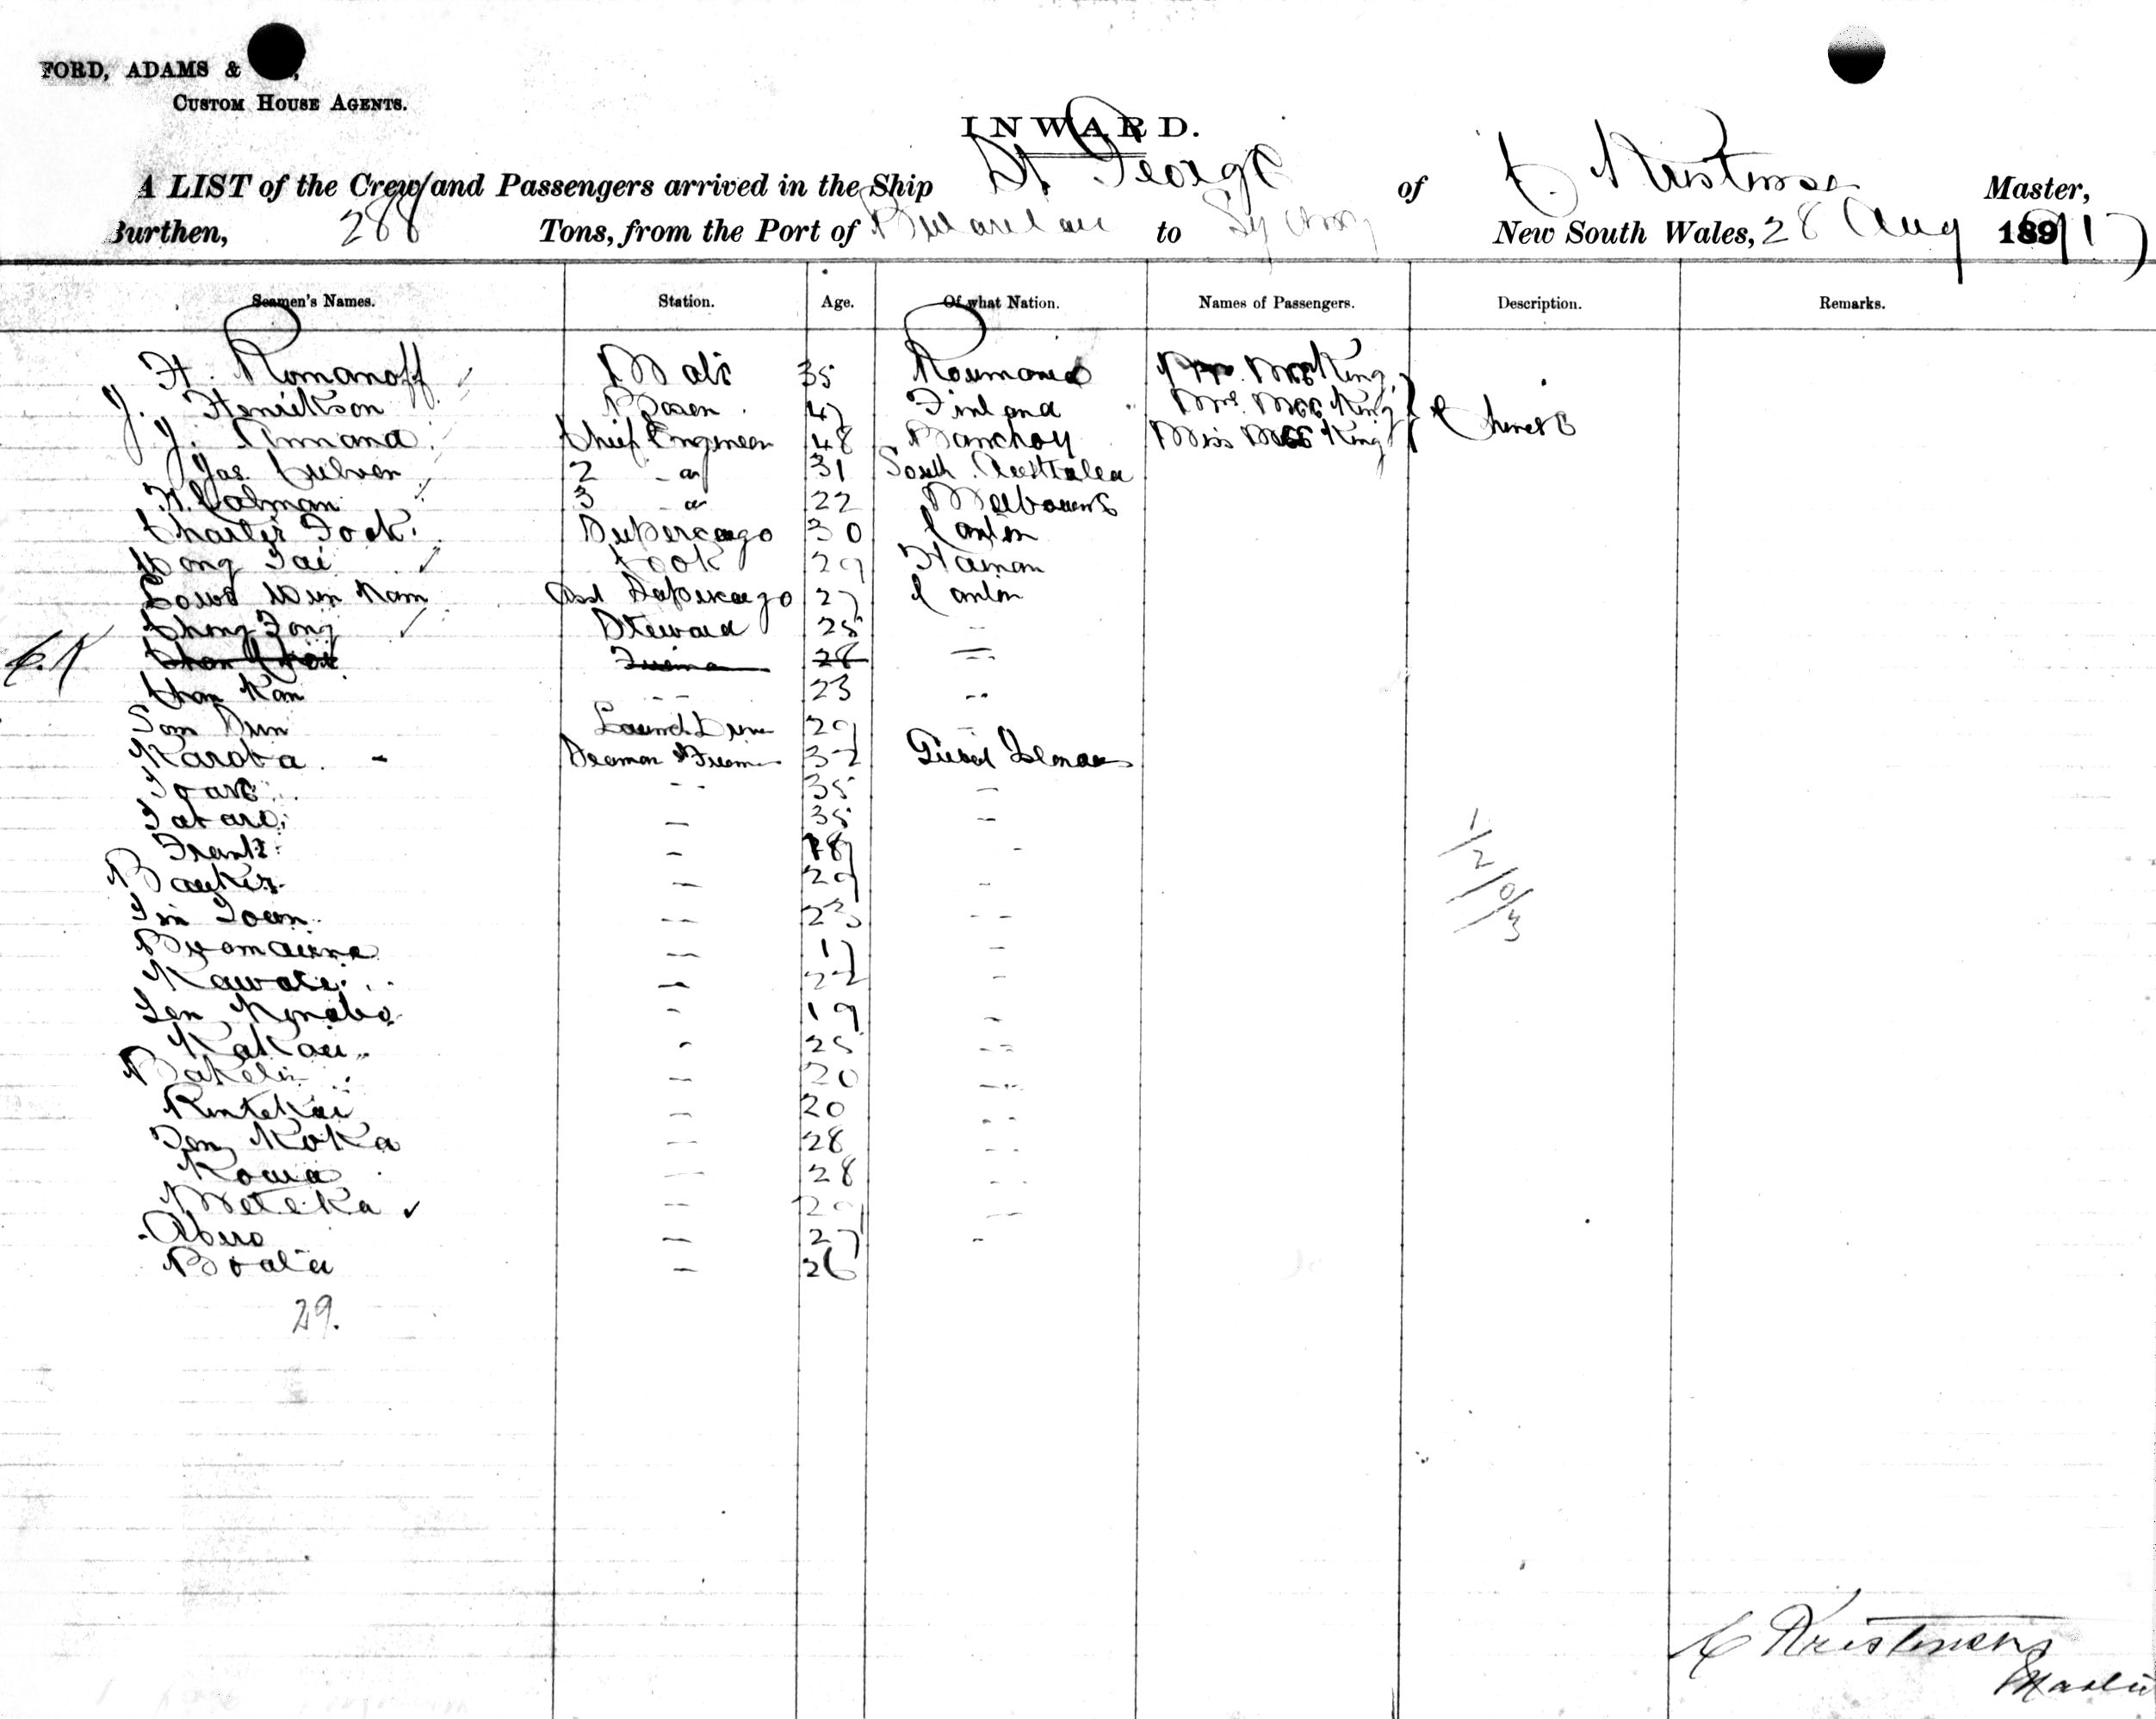 FORD, ADAMS &
CUSTOM HOUSE AGENTS.
INWARD.
A LIST of the Crew and Passengers arrived in the Ship St George of C. Kristensen Master,
Burthen, 288 Tons, from the Port of to Sydney New South Wales, 28 Aug 1917
Seamen's Names. Station. Age. Of what Nation. Names of Passengers. Description. Remarks.
H. Romanoff Mate 35 Roumania King
J. Henrikson Bosen 47 Finland Mrs. King Chinese
J. Annand Chief Engineer 48 Banchory Miss King
Jas Culver 2 do 31 South Australia
H. Calman 3 do 22 Melbourne
Charlie Fock Supercargo 30 Canton
Wong Tai Cook 29 Hainan
Lowe Wun Kam Asst Supercargo 27 Canton
Chong Fong Steward 25 -
C.K Chan Fireman 28 --
Chan Kam -- 23 --
Som Sun Launch Driver 29 --
Karoba Seaman & Fireman 37 Gilbert Islands
Toare -- 35 -
Tatare - 35 --
Frank - 18 -
Bauker - 29 -
Tim Toum -- 23 --
-- 17 -
- 22 -
Ten - 19 -
KaKau - 25 --
- 20 --
RinteKai - 20 --
Ten KoKa - 28 --
Koaua - 28 --
MeteKa -- 29 --
Abera - 27 -
- 26
1/2/0/3
29.
C Kristensen
Master